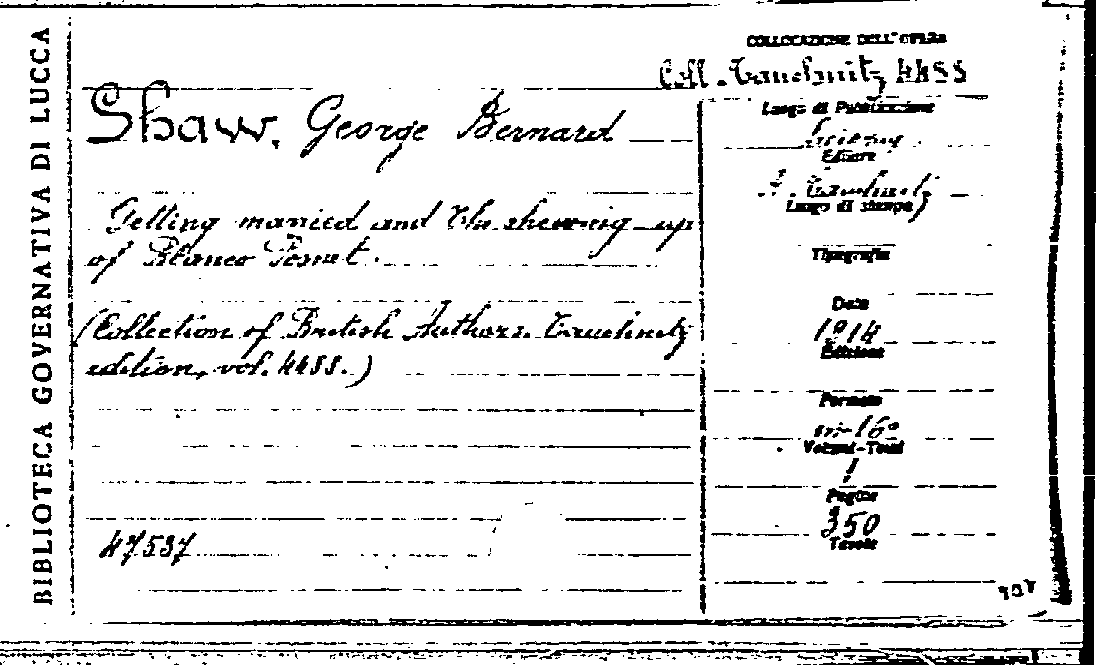 BIBLIOTECA GOVERNATIVA DI LUCCA
Shaw, George Bernard
Getting married and the shewing up
of Blanco Posnet.
(Collection of British Authors. Tauchnitz
edition, vol. 4455.)
47537
COLLOCAZIONE DELL'OPERA
Coll. Tauchnitz 4455
Luogo di Pubblicazione
Leipzig
Editore
B. Tauchnitz
Luogo di stampa
Tipografia
Data
1914
Edizione
Formato
in-16°
Volumi-Tomi
1
Pagine
350
Tavole